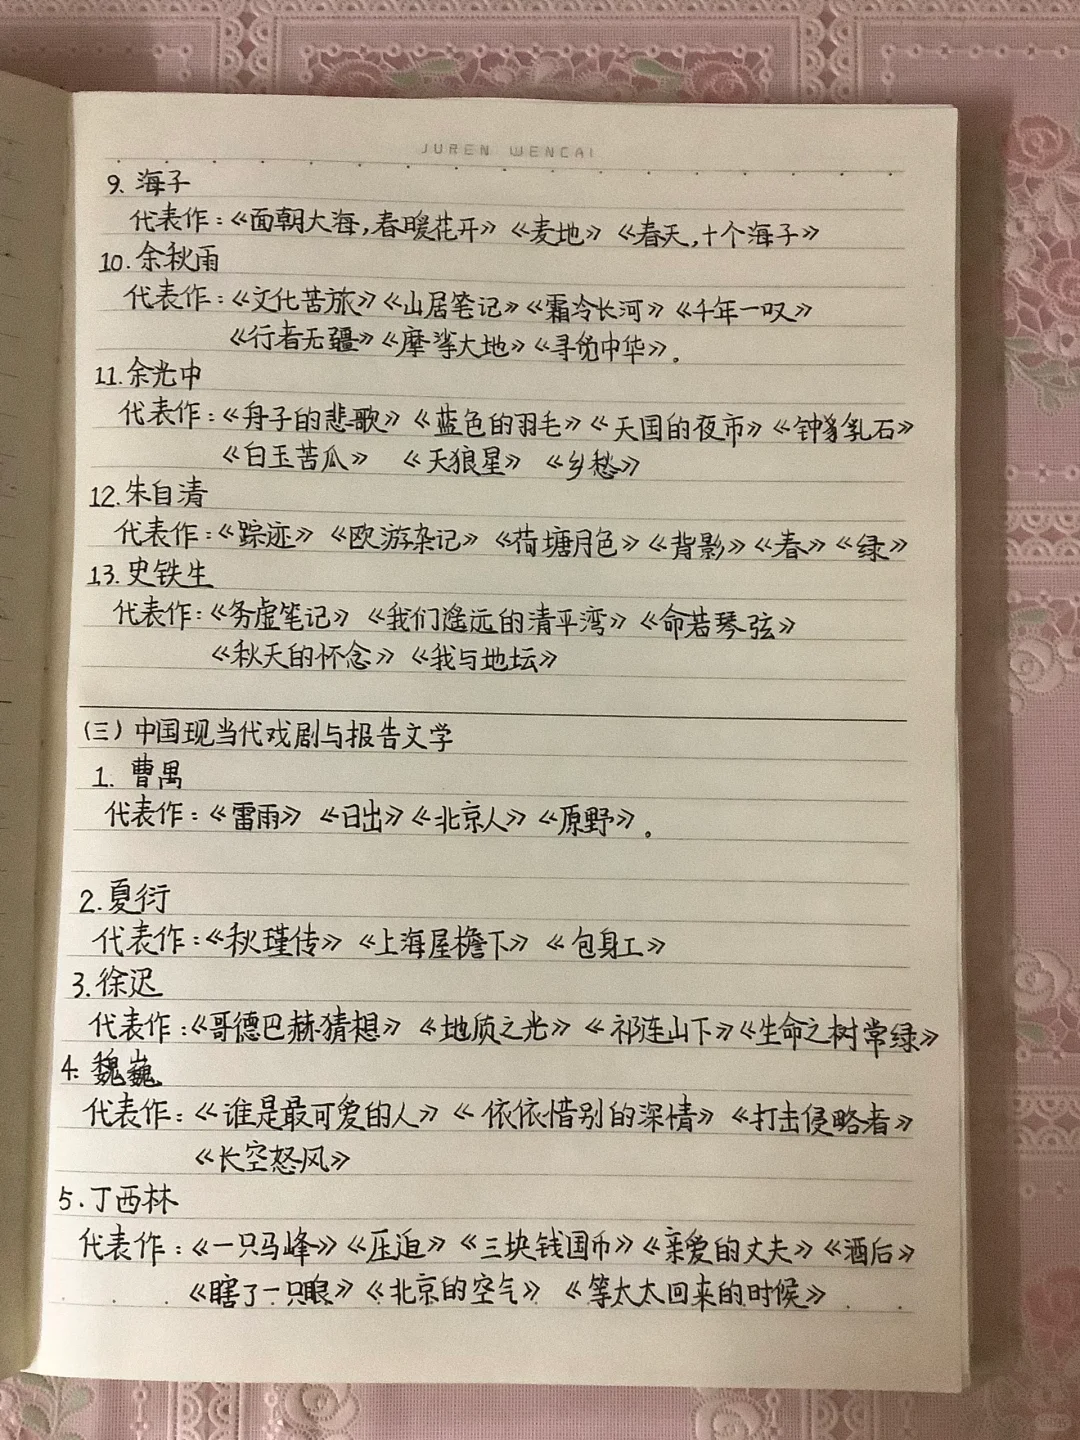 JUREN WENCAI
9. 海子
代表作:《面朝大海,春暖花开》《麦地》《春天,十个海子》
10. 余秋雨
代表作:《文化苦旅》《山居笔记》《霜冷长河》《千年一叹》
《行者无疆》《摩挲大地》《寻觅中华》。
11. 余光中
代表作:《舟子的悲歌》《蓝色的羽毛》《天国的夜市》《钟乳石》
《白玉苦瓜》《天狼星》《乡愁》
12. 朱自清
代表作:《踪迹》《欧游杂记》《荷塘月色》《背影》《春》《绿》
13. 史铁生
代表作:《务虚笔记》《我们遥远的清平湾》《命若琴弦》
《秋天的怀念》《我与地坛》
(三)中国现当代戏剧与报告文学
1. 曹禺
代表作:《雷雨》《日出》《北京人》《原野》。
2. 夏衍
代表作:《秋瑾传》《上海屋檐下》《包身工》
3. 徐迟
代表作:《哥德巴赫猜想》《地质之光》《祁连山下》《生命之树常绿》
4. 魏巍
代表作:《谁是最可爱的人》《依依惜别的深情》《打击侵略者》
《长空怒风》
5. 丁西林
代表作:《一只马峰》《压迫》《三块钱国币》《亲爱的丈夫》《酒后》
《瞎了一只眼》《北京的空气》《等太太回来的时候》